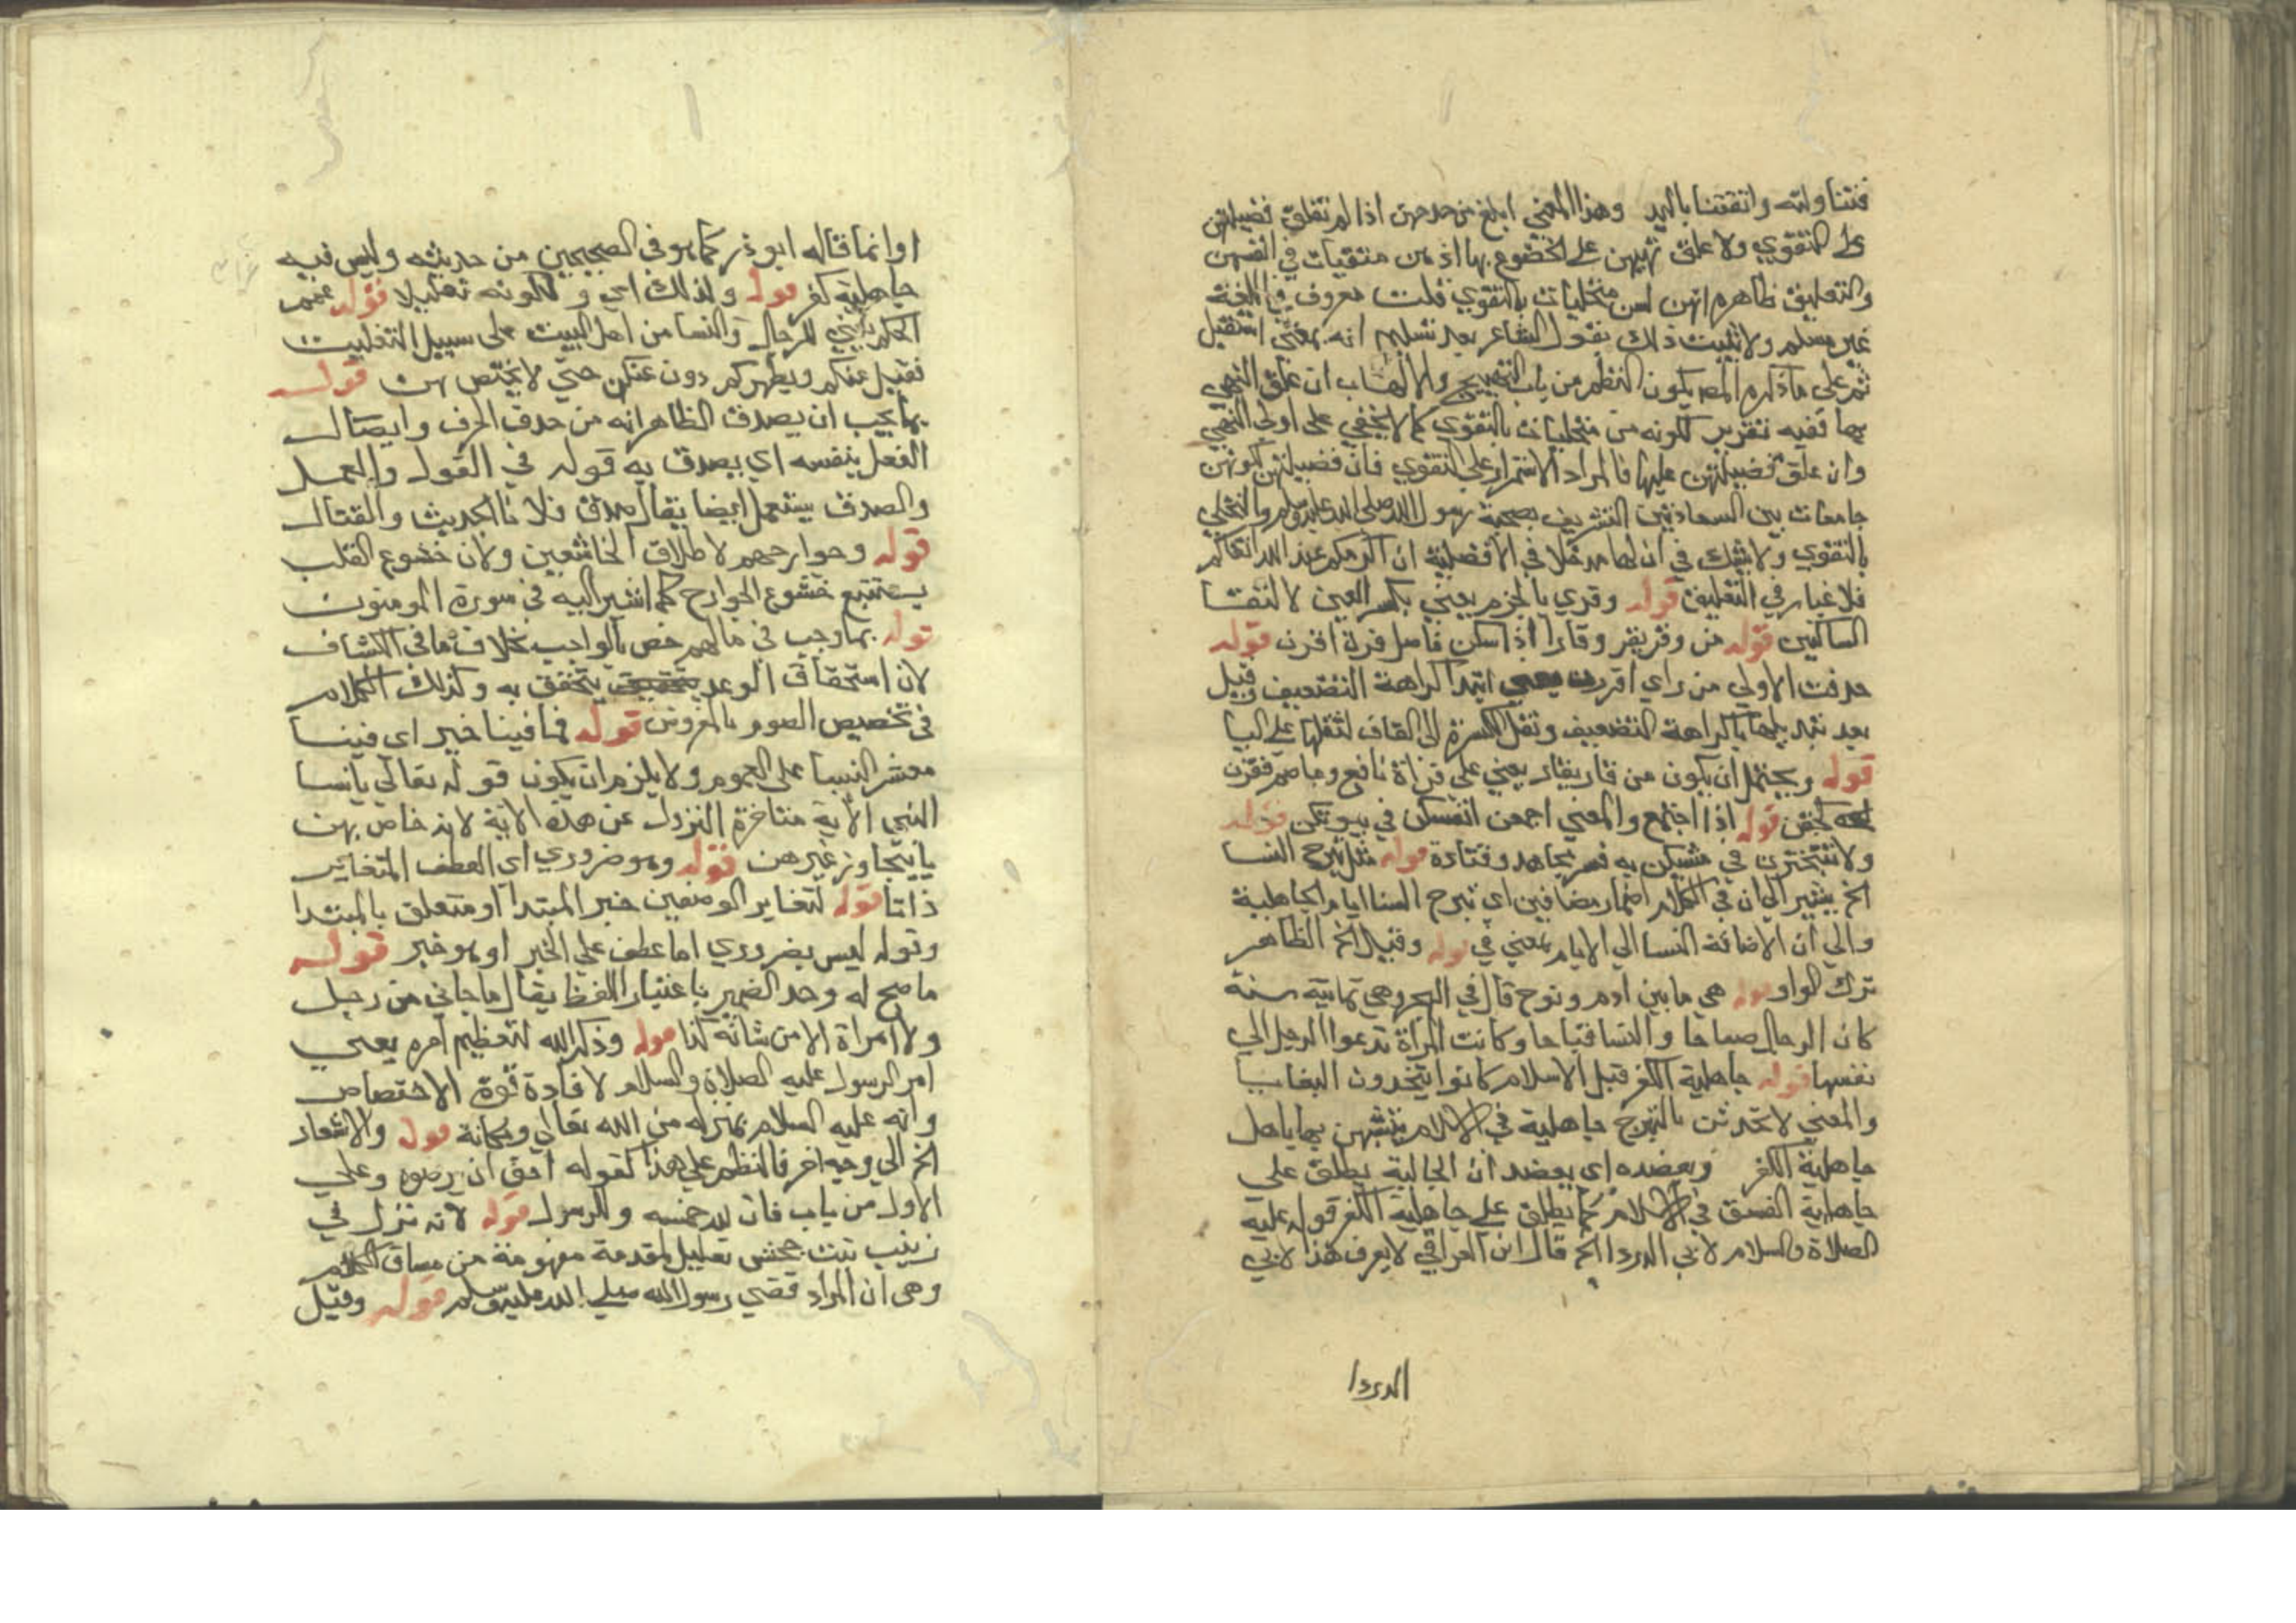 فتناولته واتقتنا باليد وهذا المعني ابلغ من مدحهن اذا لم تعلق فضيلتهن
على التقوي ولا علق نهيهن على الخضوع بها اذ هن متقيات في انفسهن
والتعليق ظاهره انهن لسن متحليات بالتقوي قلت معروف في اللغة
غير مسلم ولا يثبت ذلك بقول الشاعر بعد تسليم انه بمعني استقبل
ثم على ما ذكره المص يكون النظم من باب التهييج والالهاب ان علق النهي
بها ففيه تقرير لكونه من متحليات بالتقوي كما لا يخفي على اولي النهي
وان علق فضيلتهن عليها فالمراد الاستمرار علي التقوي فان فضيلتهن لكونهن
جامعات بين السعادتين التشريف بصحبة رسول الله صلى الله عليه وسلم والتحلي
بالتقوي ولا شك في ان لها مدخلا في الافضلية ان اكرمكم عند الله اتقاكم
فلا غبار في التعليق قوله وقري بالجزم يعني بكسر العين لالتقا
الساكنين قوله من وقر يقر وقارا اذا سكن فاصل قرن اقرن قوله
حذفت الاولي من راي اقررن ابتدا كراهة التضعيف وقيل
بعد تبديلها يا كراهة التضعيف ونقل الكسرة الى القاف لثقلها على اليا
قوله ويحتمل ان يكون من قار يقار يعني على قراة نافع وعاصم فقرن
كخفن قوله اذا اجتمع والمعني اجمعن انفسكن في بيوتكن قوله
ولا تتبخترن في مشيكن به فسر مجاهد وقتادة قوله مثل تبرج النسا
الخ يشير الي ان في الكلام اضمار مضافين اي تبرج النسا ايام الجاهلية
والي ان الاضافة النسا الي الايام بمعني في قوله وقيل الخ الظاهر
ترك الواو قوله هي ما بين ادم ونوح قال في البحر وهي ثمانية سنة
كان الرجال صباحا والنسا قباحا وكانت المرأة تدعوا الرجل الي
نفسها قوله جاهلية الكفر قبل الاسلام كانوا يتخدون البغايا
والمعني لا تحدثن بالتبرج جاهلية في الاسلام يتشبهن بها باهل
جاهلية الكفر ويعضده اي يعضد ان الجالية يطلق علي
جاهلية الفسق في الاسلام كما يطلق علي جاهلية الكفر قوله عليه
الصلاة والسلام لابي الدردا الخ قال ابن العراقي لا يعرف هذا لابي
الدردا
اوانما قاله ابو ذر كما هو في الصحيحين من حديثه وليس فيه
جاهلية كفر قوله ولذلك اي ولكونه تعليلا قوله عمم
الحكم يعني للرجال والنسا من اهل البيت على سبيل التغليب
فقيل عنكم ويطهركم دون عنكن حتي لا يختص بهن قوله
بما يجب ان يصدق الظاهر انه من حدف الحرف وايصال
الفعل بنفسه اي يصدق به قوله في القول والعمل
والصدق يستعمل ايضا يقال صدق فلانا الحديث والقتال
قوله وجوارحهم لاطلاق الخاشعين ولان خشوع القلب
يستتبع خشوع الجوارح كما اشير اليه في سورة المومنون
قوله بما وجب في مالهم خص بالواجب بخلاف ما في الكشاف
لان استحقاق الوعد يتحقق به وكذلك الكلام
في تخصيص الصوم بالفروض قوله فما فينا خير اي فينا
معشر النسا على العموم ولا يلزم ان يكون قوله تعالي يانسا
النبي الاية متاخرة النزول عن هذه الاية لانه خاص بهن
يا يتجاوز غيرهن قوله وهو ضروري اي العطف المتغاير
ذاتا قوله لتغاير الوصفين خبر المبتدا او متعلق بالمبتدا
وقوله ليس بضروري اما عطف علي الخبر او هو خبر قوله
ما صح له وحد الضمير باعتبار اللفظ يقال ما جاني من رجل
ولا امراة الا من شانه كذا قوله وذكر الله لتعظيم امره يعني
امر الرسول عليه الصلاة والسلام لافادة قوة الاختصاص
وانه عليه السلام بمنزله من الله تعالي ومكانة قوله والاشعار
الخ الي وجه اخر فالنظم علي هذا كقوله احق ان يرضوه وعلي
الاول من باب فان لله خمسه وللرسول قوله لانه نزل في
زينب بنت جحش تعليل لمقدمة مفهومة من مساق الكلام
وهي ان المراد قضي رسول الله صلي الله عليه وسلم قوله وقيل